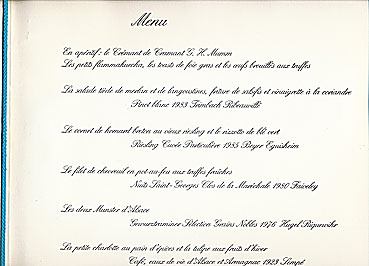 Menu
En apéritif : le Crémant de Cramant G. H. Mumm
Les petits flammakueche, les toasts de foie gras et les œufs brouillés aux truffes
La salade tiède de merlan et de langoustines, friture de salsifis et vinaigrette à la coriandre
Pinot blanc 1983 Trimbach Ribeauvillé
Le cornet de homard breton au vieux riesling et le rizotto de blé vert
Riesling Cuvée Particulière 1985 Beyer Eguisheim
Le filet de chevreuil en pot-au-feu aux truffes fraîches
Nuits Saint-Georges Clos de la Maréchale 1980 Faiveley
Les deux Munster d'Alsace
Gewurztraminer Sélection Grains Nobles 1976 Hugel Riquewihr
La petite charlotte au pain d'épices et la tulipe aux fruits d'hiver
Café, eaux de vie d'Alsace et Armagnac 1923 Sempé